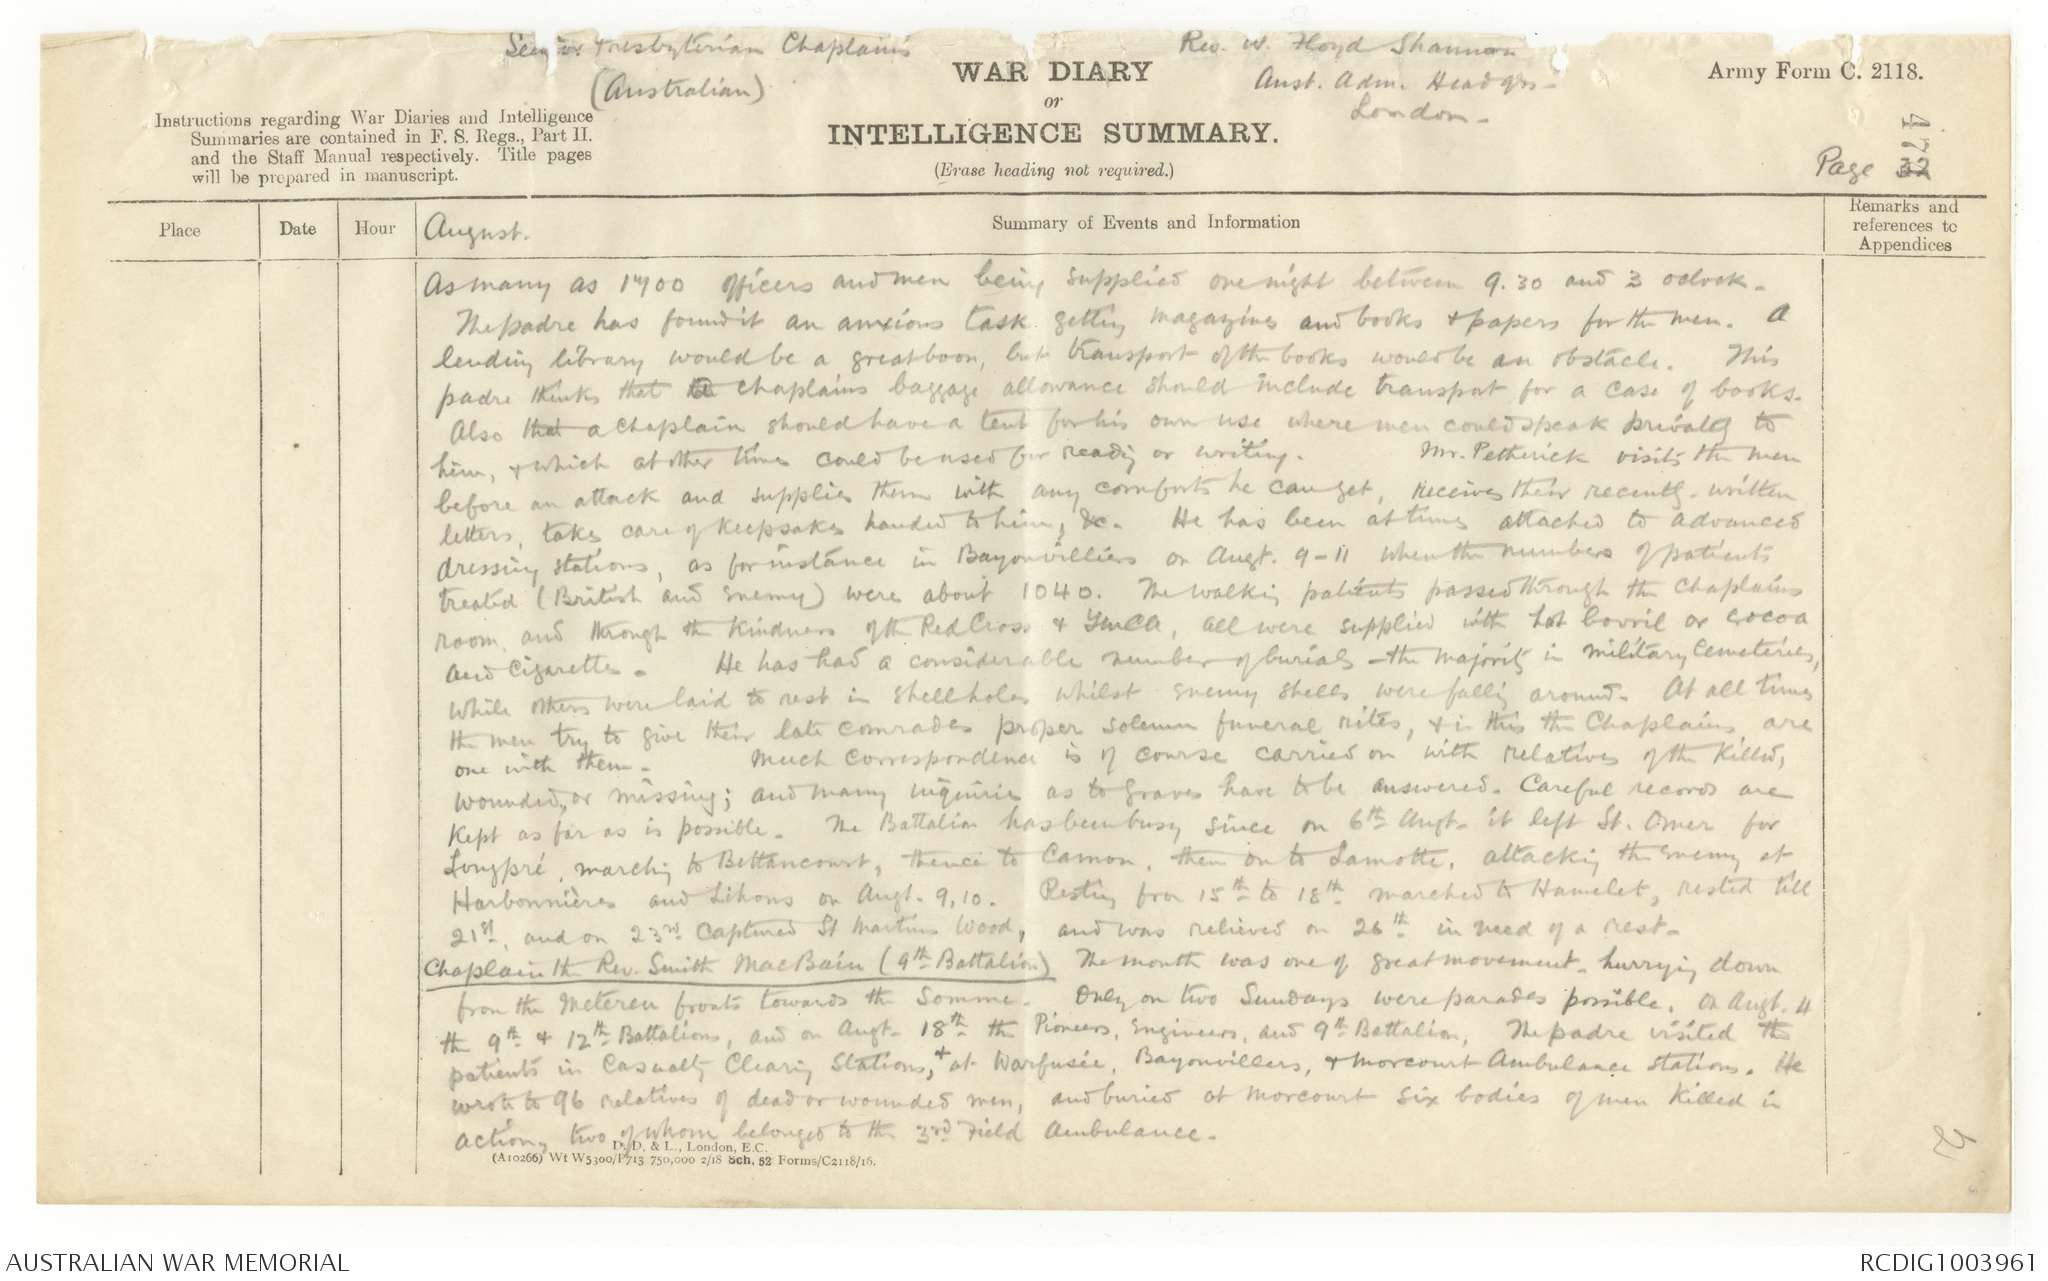 Senior Presbyterian Chaplains
(Australian)
Rev. W. Floyd Shannon
Aust. Adm. Headqrs -
London -
WAR DIARY
or
INTELLIGENCE SUMMARY.
(Erase heading not required.)
Army Form C. 2118.
Instructions regarding War Diaries and Intelligence
Summaries are contained in F. S. Regs., Part II.
and the Staff Manual respectively. Title pages
will be prepared in manuscript.
47
Page 32
Place
Date
Hour
August.
Summary of Events and Information
Remarks and
references to
Appendices
As many as 1700 officers and men being supplied one night between 9.30 and 3 oclock -
The padre has found it an anxious task getting magazines and books & papers for the men. A
lending library would be a great boon, but transport of the books would be an obstacle. This
padre thinks that a chaplains baggage allowance should include transport for a case of books.
Also that a chaplain should have a tent for his own use where men could speak privately to
him, & which at other times could be used for reading or writing. Mr. Petherick visits the men
before an attack and supplies them with any comforts he can get, receives their recently-written
letters, takes care of keepsakes handed to him, &c. He has been at times attached to advanced
dressing stations, as for instance in Bayonvilliers on Augt. 9-11 when the numbers of patients
treated (British and Enemy) were about 1040. The walking patients passed through the chaplains
room, and through the kindness of the Red Cross & YMCA, all were supplied with hot bovril or cocoa
and cigarettes - He has had a considerable number of burials - the majority in military cemeteries,
while others were laid to rest in shellholes whilst enemy shells were falling around. At all times
the men try to give their late comrades proper solemn funeral rites, & in this the Chaplains are
one with them - Much correspondence is of course carried on with relatives of the killed,
wounded, or missing; and many inquiries as to graves have to be answered. Careful records are
kept as far as is possible. The Battalion has been busy since on 6th Augt. it left St. Omer for
Longpré, marching to Bettancourt, thence to Camon, then on to Lamotte, attacking the enemy at
Harbonnières and Lihons on Augt. 9, 10. Resting from 15th to 18th marched to Hamelet, rested till
21st, and on 23rd captured St Martins Wood, and was relieved on 26th in need of a rest -
Chaplain the Rev. Smith MacBain (9th Battalion) The month was one of great movement - hurrying down
from the Meteren fronts towards the Somme. Only on two Sundays were parades possible, on Augt. 4
the 9th & 12th Battalions, and on Augt. 18th the Pioneers, Engineers, and 9th Battalion, The padre visited the
patients in Casualty Clearing Stations, & at Warfusée, Bayonvillers, & Morcourt Ambulance stations. He
wrote to 96 relatives of dead or wounded men, and buried at Morcourt six bodies of men killed in
action, two of whom belonged to the 3rd Field Ambulance.
D. D. & L., London, E.C.
(A10266) Wt W5300/P713 750,000 2/18 Sch. 52 Forms/C2118/16.
AUSTRALIAN WAR MEMORIAL
RCDIG1003961